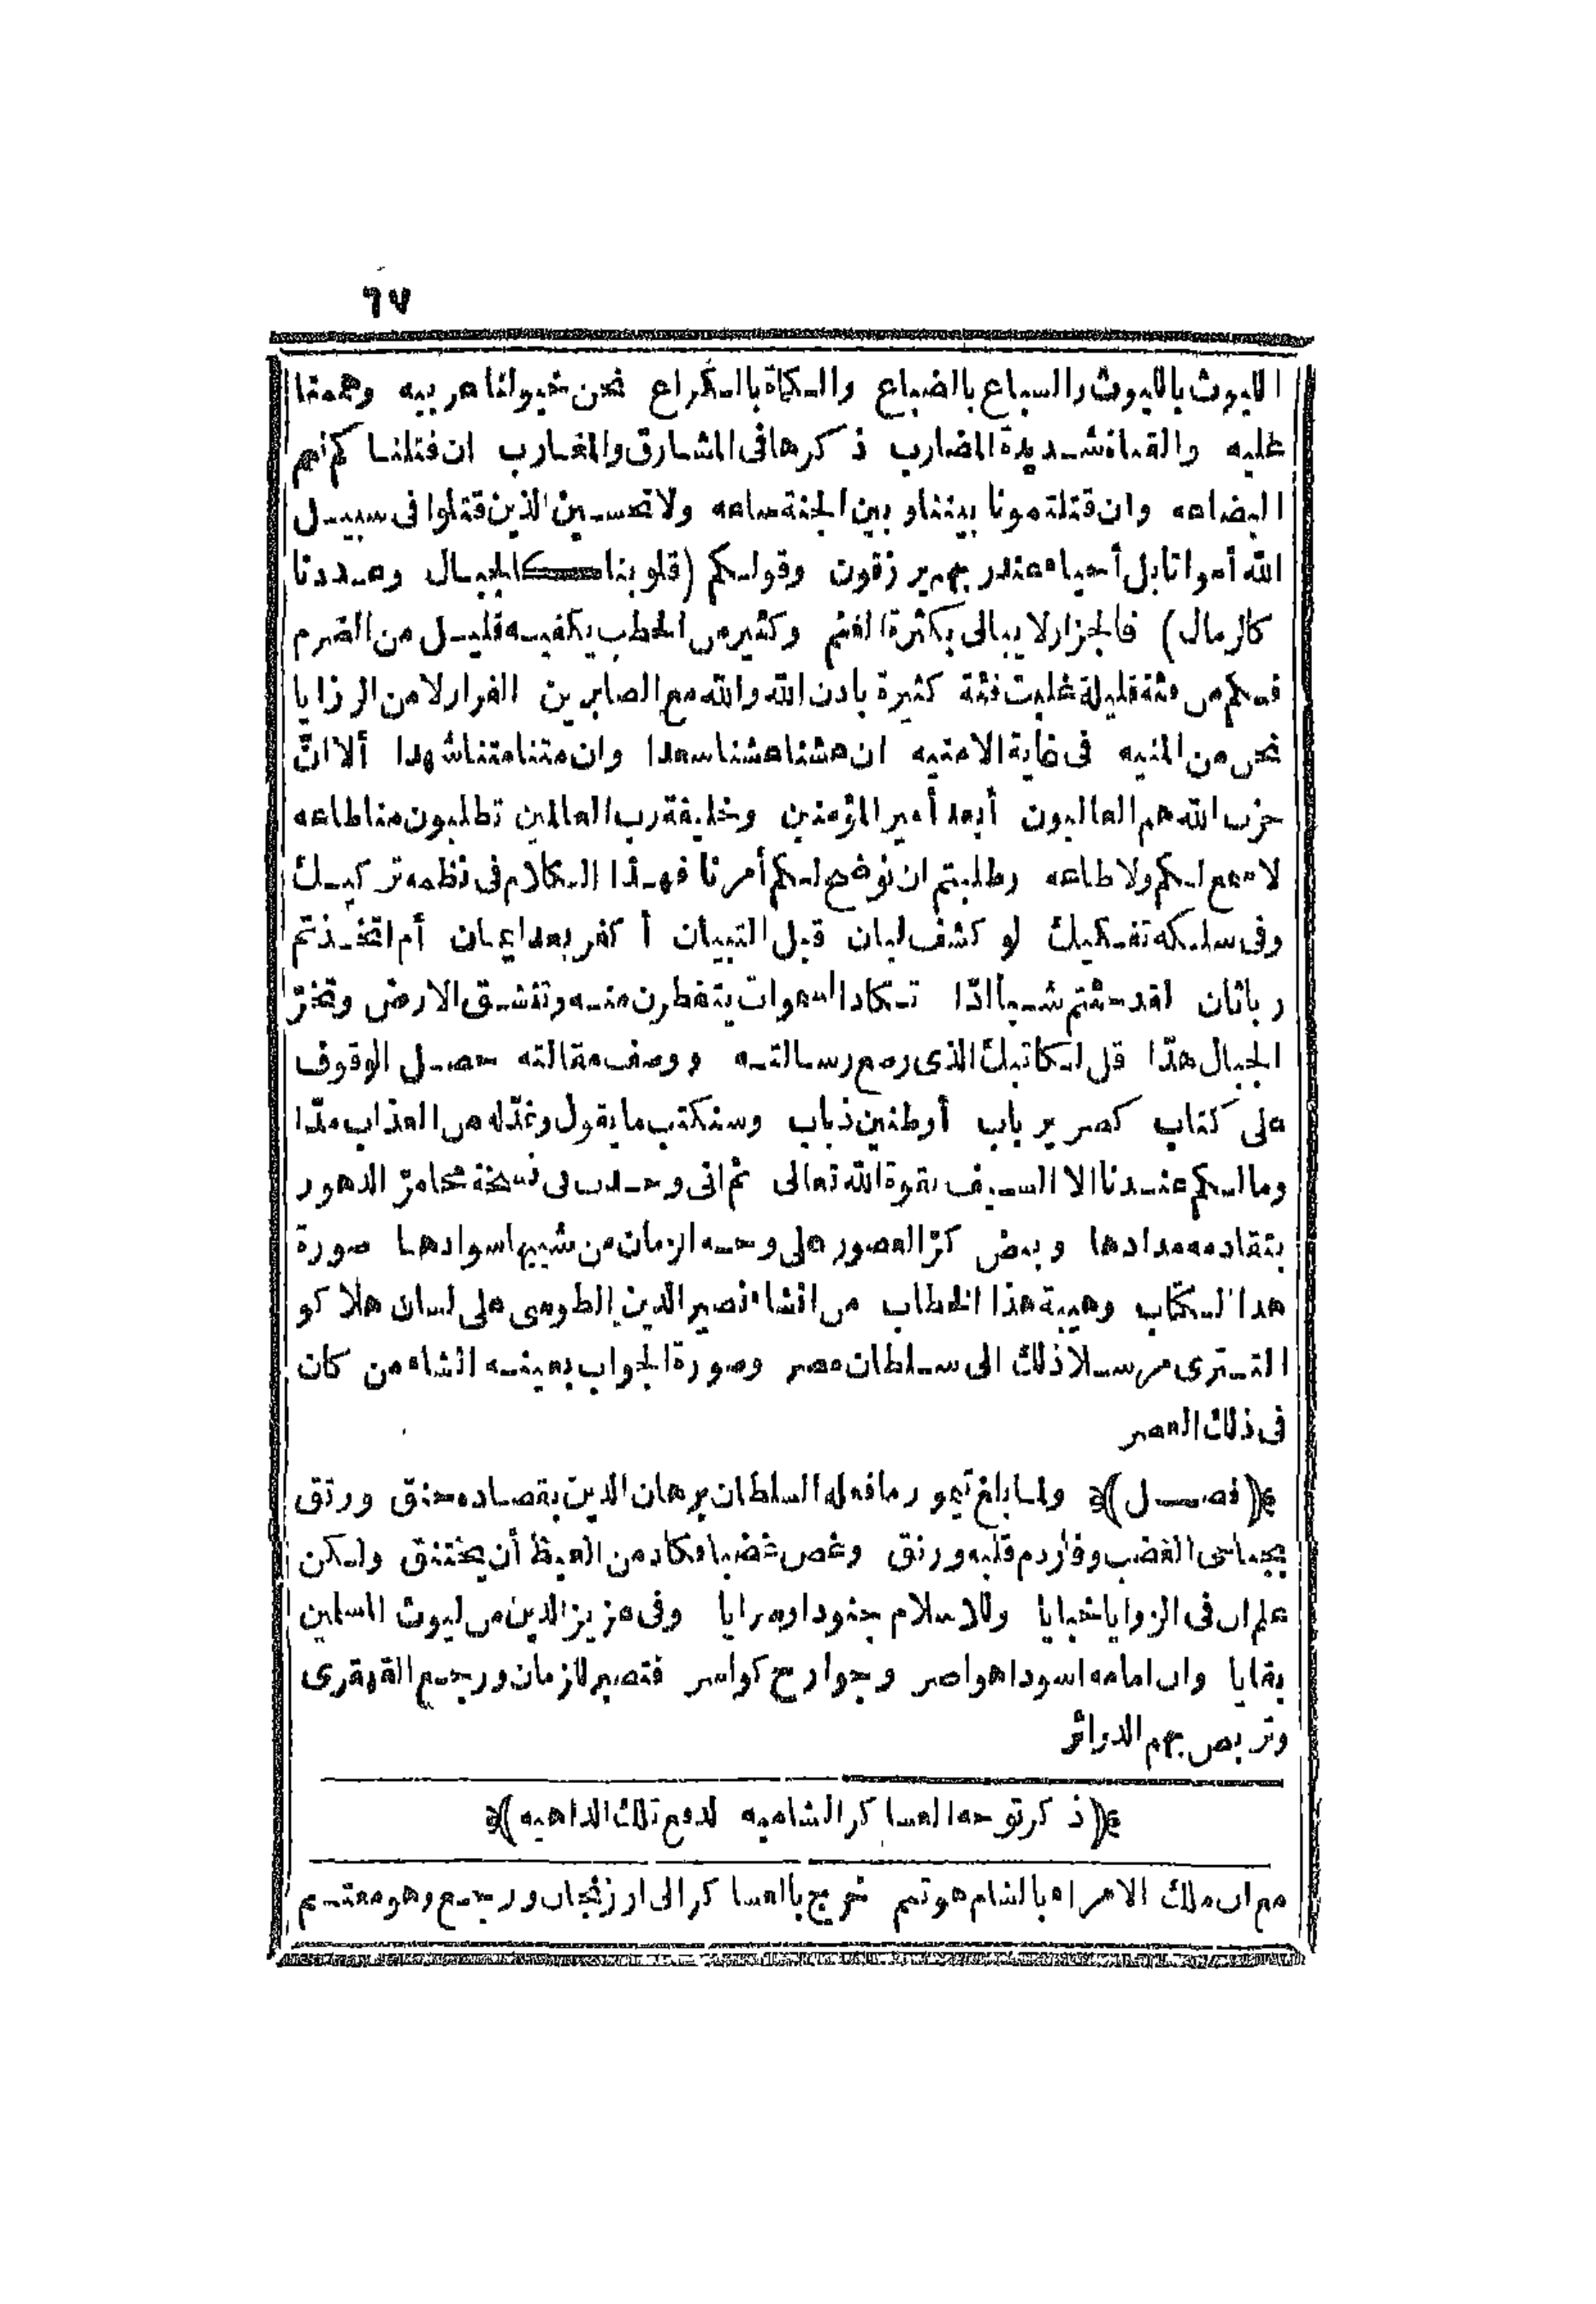 ٦٧
الليوث بالليوث والسباع بالضباع والكماة بالكراع نحن خيولنا عربيه وهممنا
عليه والقناة شديدة المضارب ذكرها فى المشارق والمغارب ان قتلنا كم نعم
البضاعه وان قتلتمونا بيننا وبين الجنة ساعه ولا تحسبن الذين قتلوا فى سبيل
الله أمواتا بل أحياء عند ربهم يرزقون وقولكم (قلوبنا كالجبال وعددنا
كالرمال) فالجزار لا يبالى بكثرة الغنم وكثير من الحطب يكفيه قليل من الضرم
فكم من فئة قليلة غلبت فئة كثيرة باذن الله والله مع الصابرين الفرار لا من الرزايا
نحن من المنيه فى غاية الامنيه ان عشنا عشنا سعدا وان متنا متنا شهدا ألا انّ
حزب الله هم الغالبون أبعد أمير المؤمنين وخليفة رب العالمين تطلبون منا طاعه
لا سمع لكم ولا طاعه وطلبتم ان نوضح لكم أمرنا فهذا الكلام فى نظمه تركيك
وفى سلكه تفكيك لو كشف لبان قبل التبيان أكفر بعد ايمان أم اتخذتم
ربا ثان لقد جئتم شيأ ادّا تكاد السموات يتفطرن منه وتنشق الارض وتخرّ
الجبال هدّا قل لكاتبك الذى رصع رسالته ووصف مقالته حصل الوقوف
على كتاب كصرير باب أو طنين ذباب وسنكتب ما يقول ونمدّ له من العذاب مدّا
وما لكم عندنا الا السيف بقوة الله تعالى ثم انى وجدت فى نسخة محا مرّ الدهور
بتقادمه مدادها وبيض كرّ العصور على وجه الزمان من شيبها سوادها صورة
هذا الكتاب وهيبة هذا الخطاب من انشاء نصير الدين الطوسى على لسان هلاكو
التترى مرسلا ذلك الى سلطان مصر وصورة الجواب بعينه انشاء من كان
فى ذلك العصر
﴿(فصل)﴾ ولما بلغ تيمور ما فعله السلطان برهان الدين بقصاده حنق ورتق
بحيا حى الغضب وفار دم قلبه ورنق وغص غضبا فكاد من الغيظ أن يختنق ولكن
علم ان فى الزوايا خبايا وللاسلام جنودا وسرايا وفى عزيز الدين من ليوث المسلمين
بقايا وان امامه اسودا هواصر وجوارح كواسر فتصبر للزمان ورجع القهقرى
وتربص بهم الدوائر
﴿(ذكر توجه العساكر الشاميه لدفع تلك الداهيه)﴾
مع ان ملك الامراء بالشام هو تنم خرج بالعساكر الى ارزنجان ورجع وهو مغتنم